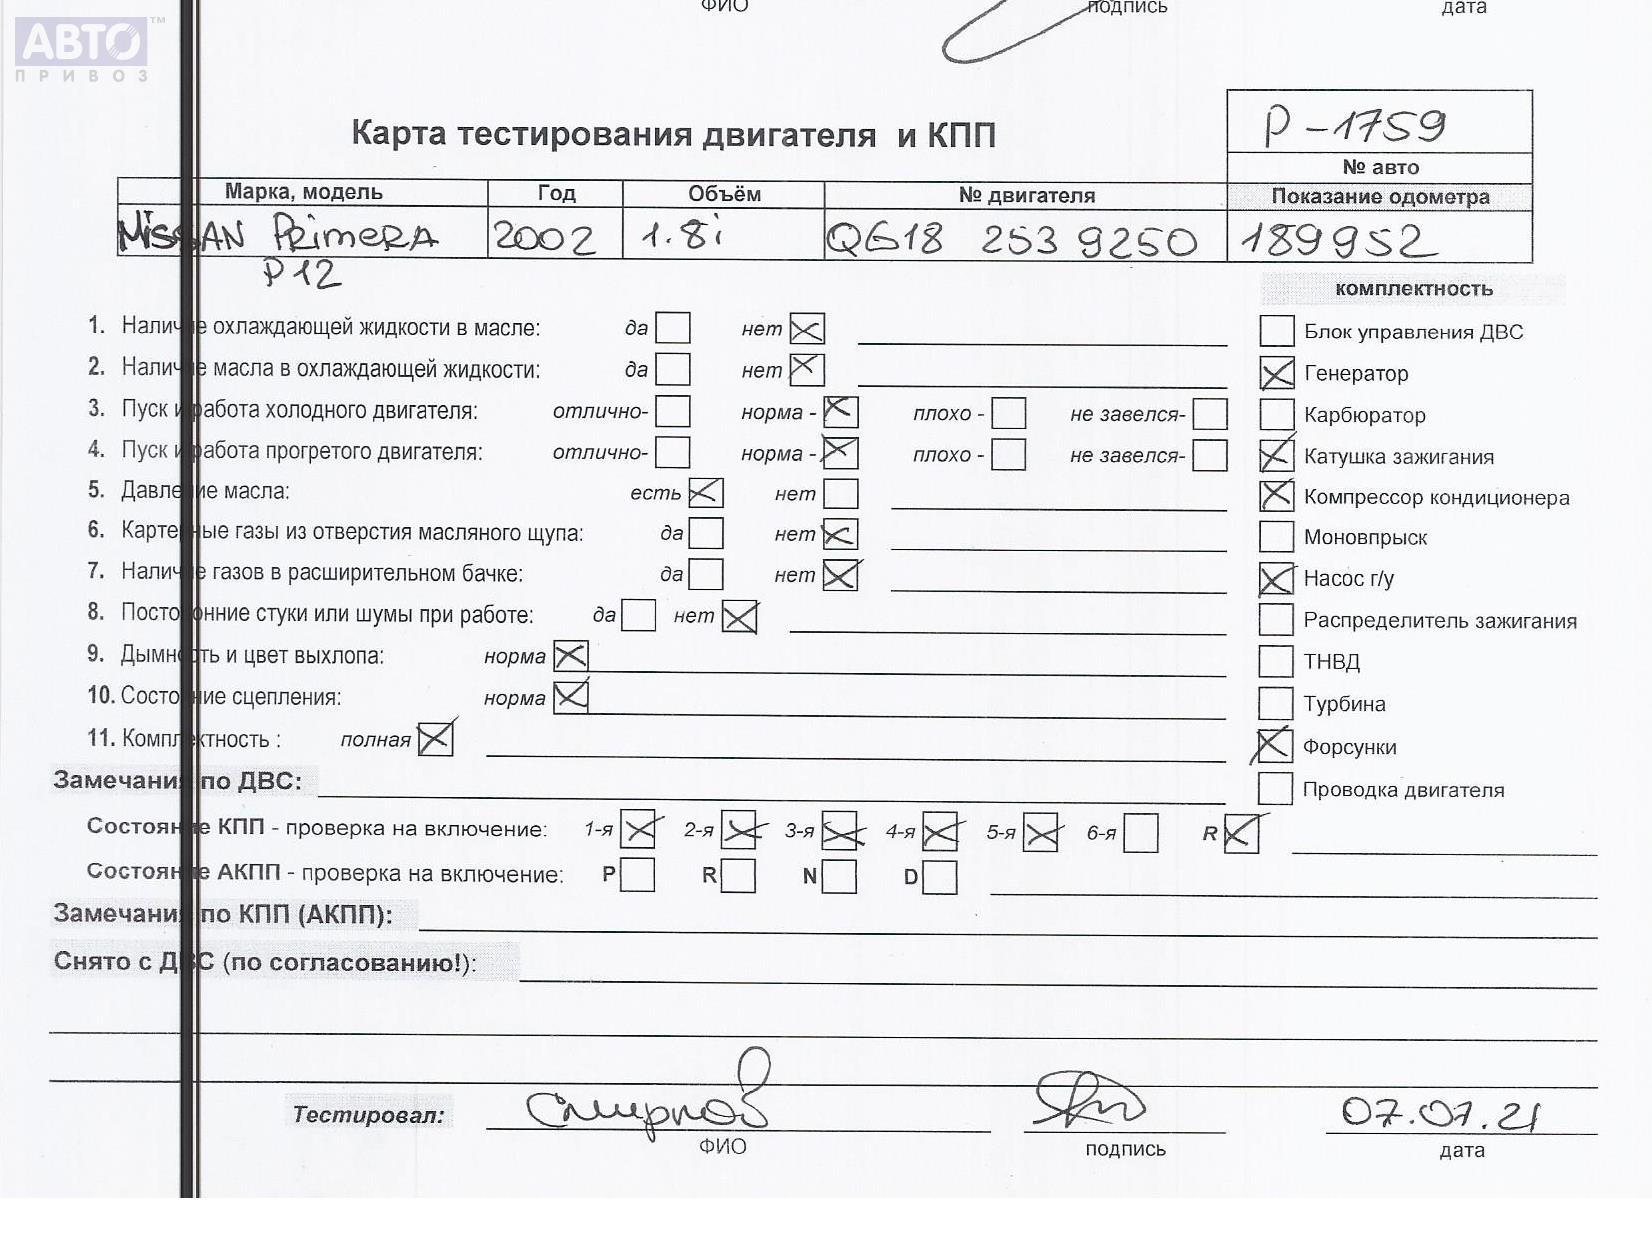 ФИО подпись дата
АВТО™
ПРИВОЗ
P-1759
Карта тестирования двигателя и КПП
№ авто
Марка, модель Год Объём № двигателя Показание одометра
NissAN PRimeRA 2002 1.8i QG18 253 9250 189952
P12
комплектность
1. Наличие охлаждающей жидкости в масле: да нет Блок управления ДВС
2. Наличие масла в охлаждающей жидкости: да нет Генератор
3. Пуск и работа холодного двигателя: отлично- норма - плохо - не завелся- Карбюратор
4. Пуск и работа прогретого двигателя: отлично- норма - плохо - не завелся- Катушка зажигания
5. Давление масла: есть нет Компрессор кондиционера
6. Картерные газы из отверстия масляного щупа: да нет Моновпрыск
7. Наличие газов в расширительном бачке: да нет Насос г/у
8. Посторонние стуки или шумы при работе: да нет Распределитель зажигания
9. Дымность и цвет выхлопа: норма ТНВД
10. Состояние сцепления: норма Турбина
11. Комплектность : полная Форсунки
Замечания по ДВС: Проводка двигателя
Состояние КПП - проверка на включение: 1-я 2-я 3-я 4-я 5-я 6-я R
Состояние АКПП - проверка на включение: P R N D
Замечания по КПП (АКПП):
Снято с ДВС (по согласованию!):
Тестировал: Смирнов 07.07.21
ФИО подпись дата